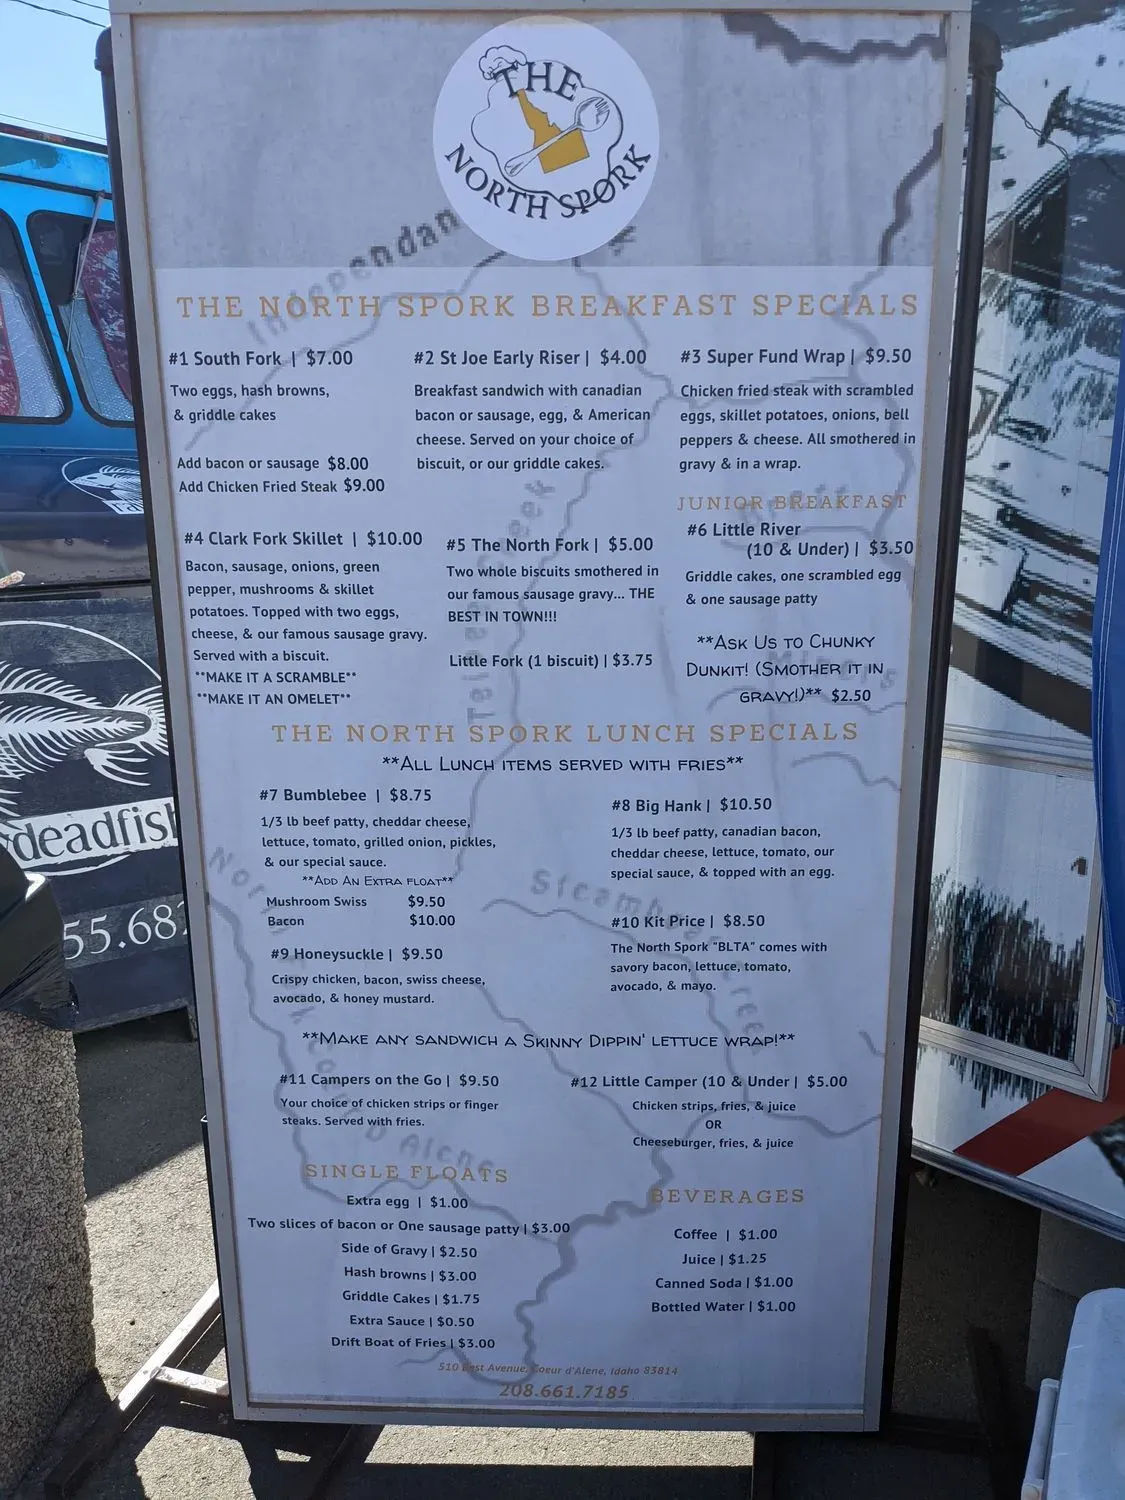 THE
NORTH SPORK
Independan
THE NORTH SPORK BREAKFAST SPECIALS
#1 South Fork | $7.00
Two eggs, hash browns,
& griddle cakes
Add bacon or sausage $8.00
Add Chicken Fried Steak $9.00
#2 St Joe Early Riser | $4.00
Breakfast sandwich with canadian
bacon or sausage, egg, & American
cheese. Served on your choice of
biscuit, or our griddle cakes.
#3 Super Fund Wrap | $9.50
Chicken fried steak with scrambled
eggs, skillet potatoes, onions, bell
peppers & cheese. All smothered in
gravy & in a wrap.
#4 Clark Fork Skillet | $10.00
Bacon, sausage, onions, green
pepper, mushrooms & skillet
potatoes. Topped with two eggs,
cheese, & our famous sausage gravy.
Served with a biscuit.
**MAKE IT A SCRAMBLE**
**MAKE IT AN OMELET**
#5 The North Fork | $5.00
Two whole biscuits smothered in
our famous sausage gravy... THE
BEST IN TOWN!!!
Little Fork (1 biscuit) | $3.75
JUNIOR BREAKFAST
#6 Little River
(10 & Under) | $3.50
Griddle cakes, one scrambled egg
& one sausage patty
**Ask Us to Chunky
Dunkit! (Smother it in
gravy!)** $2.50
THE NORTH SPORK LUNCH SPECIALS
**All Lunch items served with fries**
#7 Bumblebee | $8.75
1/3 lb beef patty, cheddar cheese,
lettuce, tomato, grilled onion, pickles,
& our special sauce.
**Add An Extra float**
Mushroom Swiss $9.50
Bacon $10.00
#8 Big Hank | $10.50
1/3 lb beef patty, canadian bacon,
cheddar cheese, lettuce, tomato, our
special sauce, & topped with an egg.
#9 Honeysuckle | $9.50
Crispy chicken, bacon, swiss cheese,
avocado, & honey mustard.
#10 Kit Price | $8.50
The North Spork "BLTA" comes with
savory bacon, lettuce, tomato,
avocado, & mayo.
**Make any sandwich a Skinny Dippin' lettuce wrap!**
#11 Campers on the Go | $9.50
Your choice of chicken strips or finger
steaks. Served with fries.
#12 Little Camper (10 & Under | $5.00
Chicken strips, fries, & juice
OR
Cheeseburger, fries, & juice
SINGLE FLOATS
Extra egg | $1.00
Two slices of bacon or One sausage patty | $3.00
Side of Gravy | $2.50
Hash browns | $3.00
Griddle Cakes | $1.75
Extra Sauce | $0.50
Drift Boat of Fries | $3.00
BEVERAGES
Coffee | $1.00
Juice | $1.25
Canned Soda | $1.00
Bottled Water | $1.00
510 Best Avenue, Coeur d'Alene, Idaho 83814
208.661.7185
deadfish
55.682